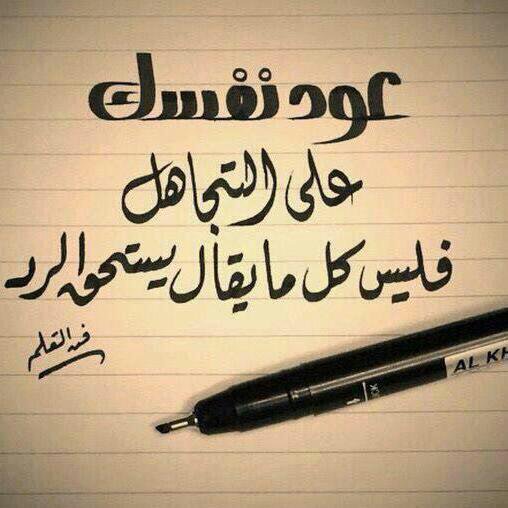 عود نفسك
على التجاهل
فليس كل ما يقال يستحق الرد
فن التعلم
AL KH